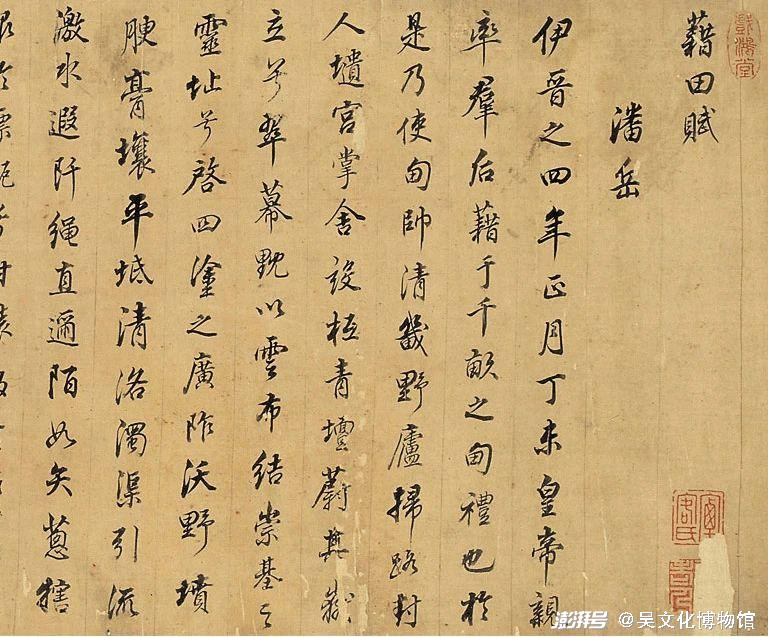 戲鴻堂
藉田賦
潘岳
伊晉之四年正月丁未皇帝親
率羣后藉于千畝之甸禮也於
是乃使甸帥清畿野廬掃路封
人壝宮掌舍設枑青壇蔚其嶽
立兮翠幕黕以雲布結崇基之
靈址兮啓四塗之廣阼沃野墳
腴膏壤平坻清洛濁渠引流
激水遐阡繩直邇陌如矢蔥犗
澎湃号 @吴文化博物馆